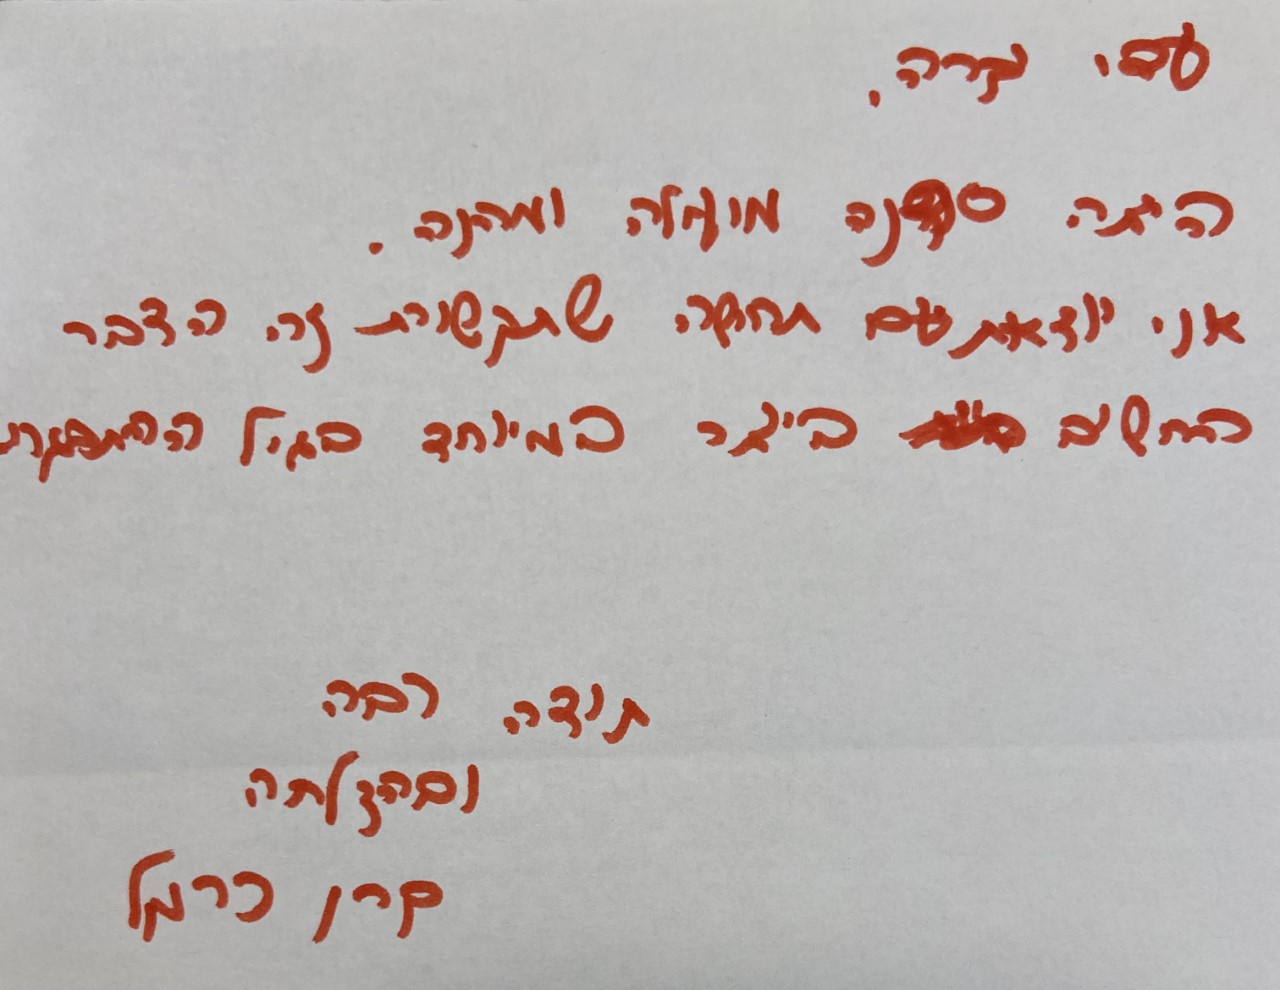 היתה סדנה מועילה ומהנה.
אני יוצאת עם תחושה שתקשורת זה הדבר
החשוב ביותר במיוחד בגיל ההתבגרות
תודה רבה
ובהצלחה
קרן כרמל